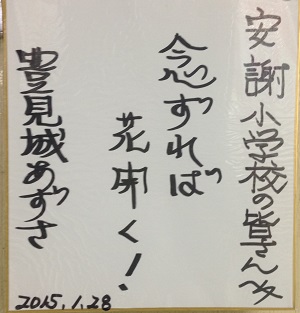 安謝小学校の皆さんへ
念ずれば
花開く!
豊見城あずさ
2015.1.28